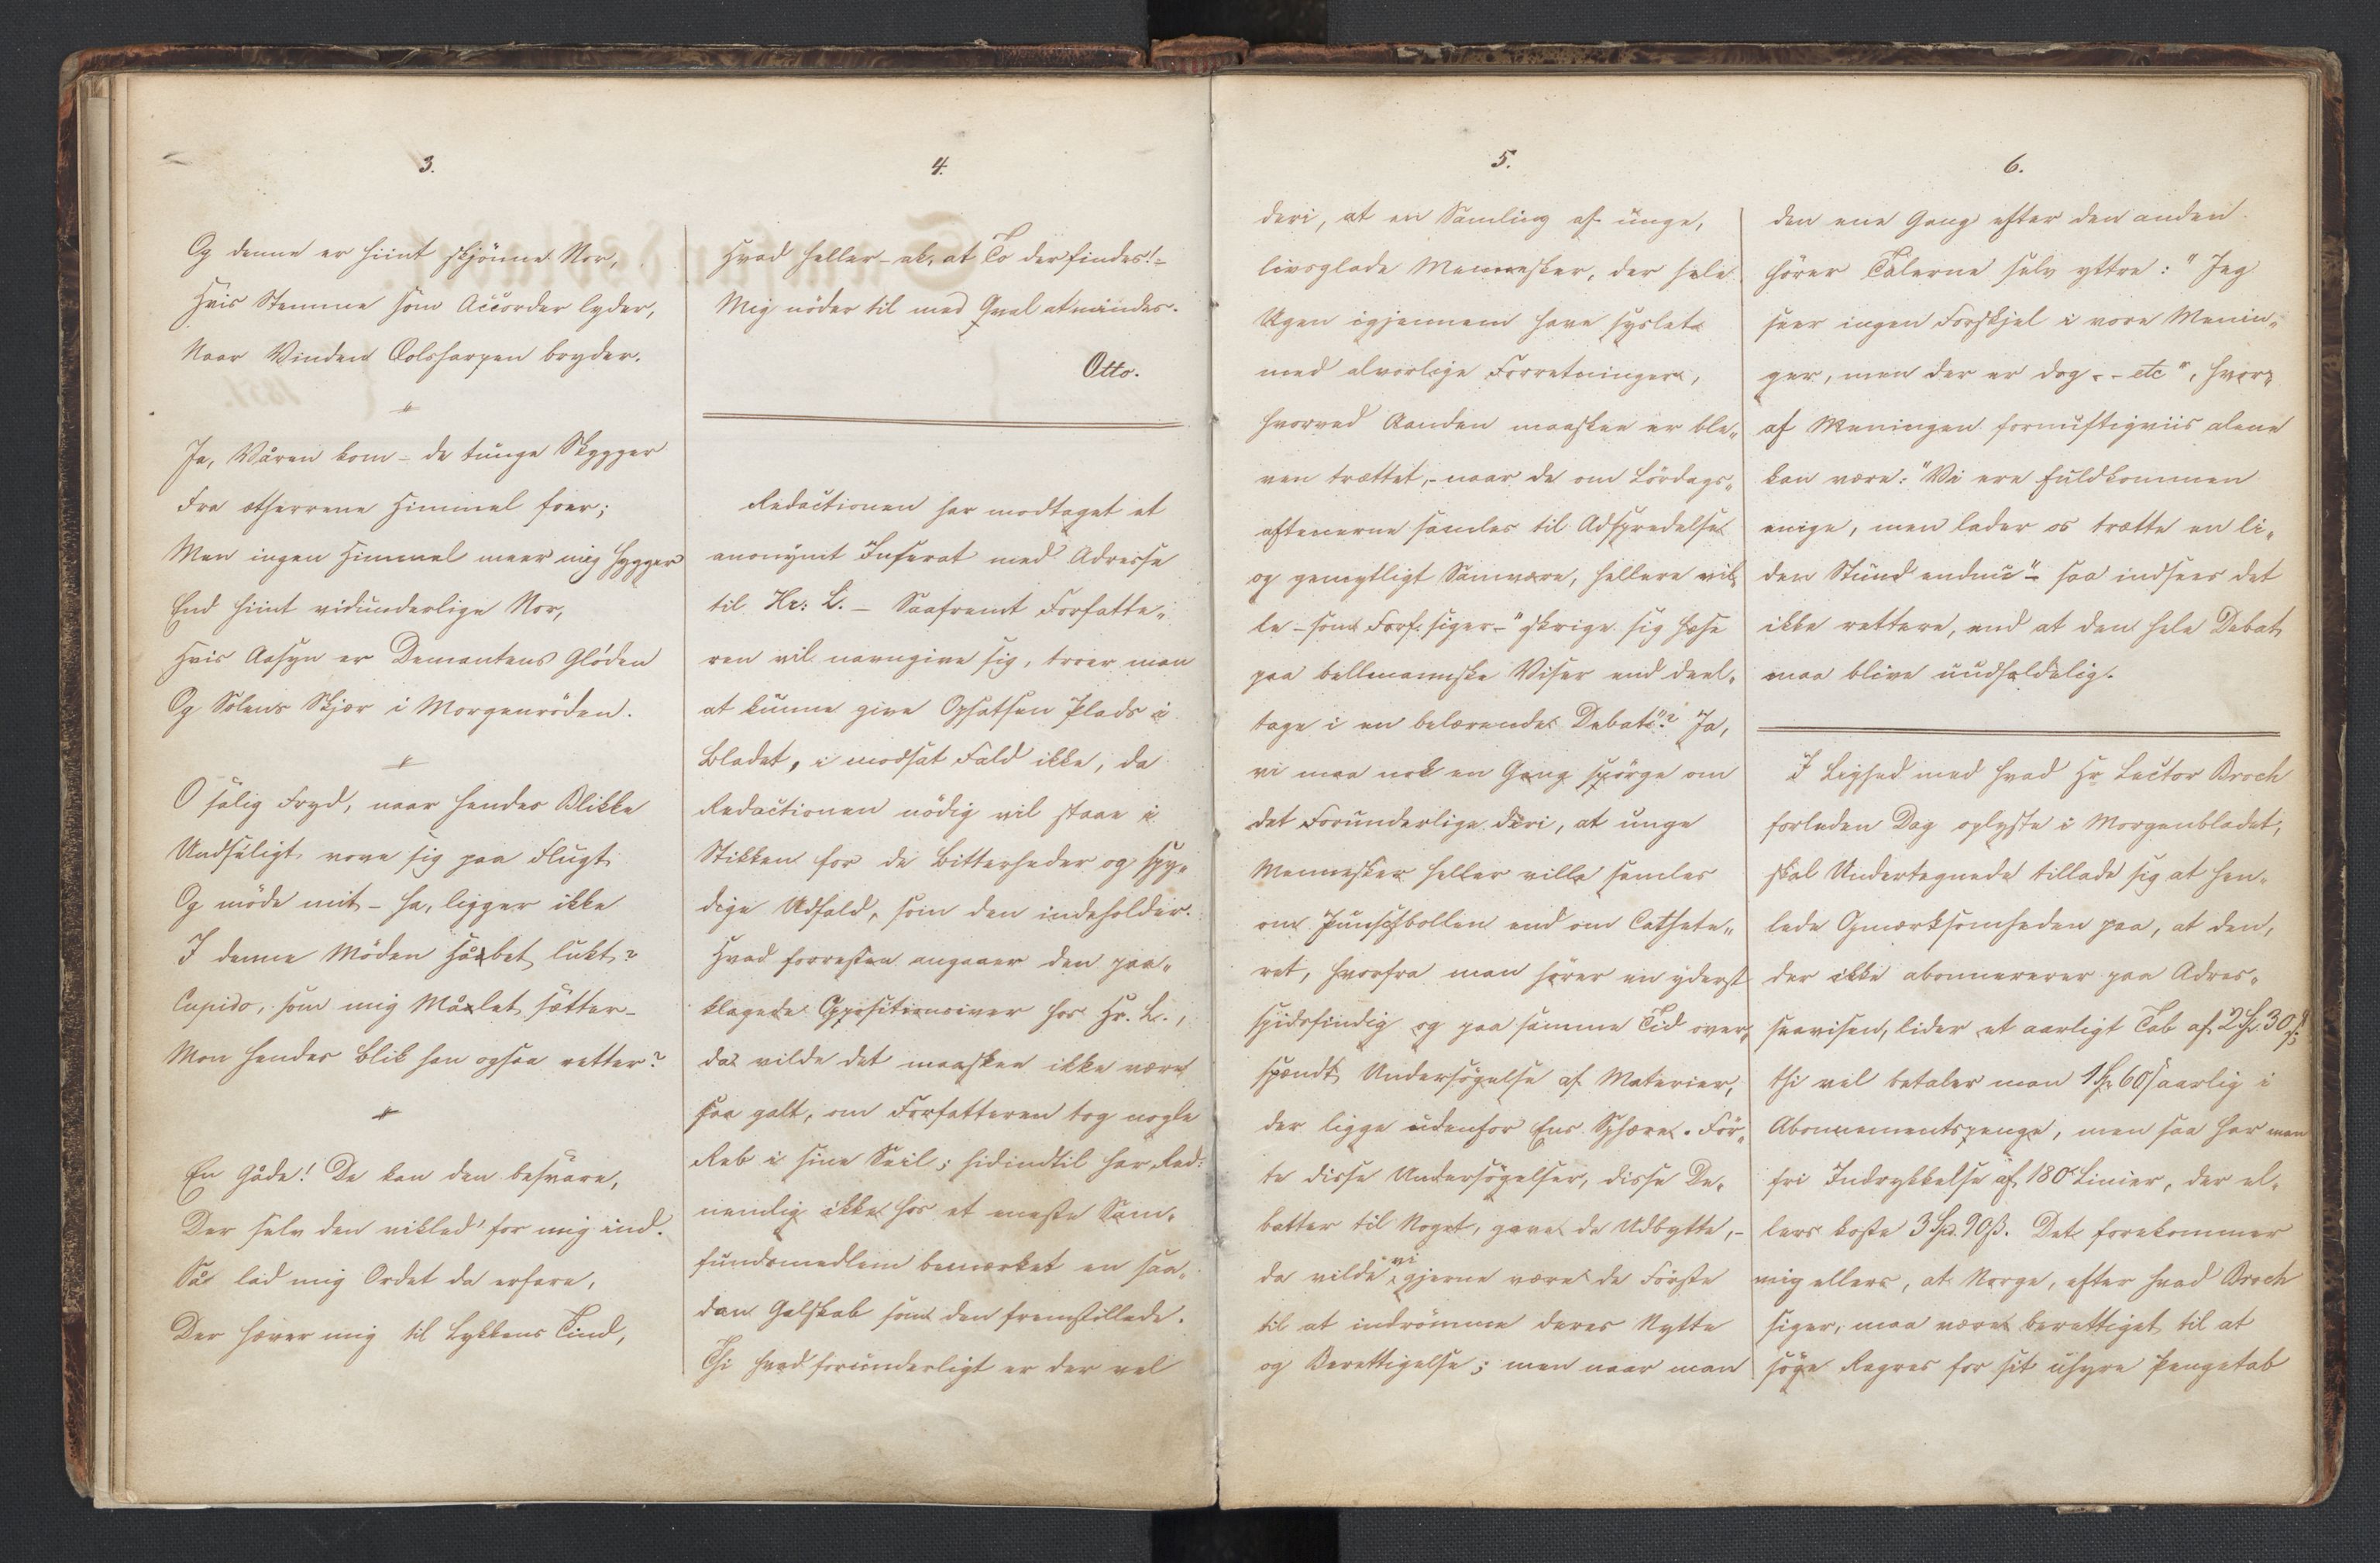 3.
Og denne er hiint skjönne Nor,
Hvis Stemme som Accorder lyder,
Naar Vinden Æolsharpen bryder.
Ja, Våren kom – de tunge Skygger
Fra ætherrene Himmel foer;
Men ingen Himmel meer mig hygger
End hiint vidunderlige Nor,
Hvis Aasyn er Demantens Glöden
Og Solens Skjær i Morgenröden.
O sålig Fryd, naar hendes Blikke
Undseligt vove sig paa Flugt
Og möde mit – ha, ligger ikke
I denne Möden Håbet lukt?
Cupido, som mig Målet sætter –
Mon hendes Blik han ogsaa retter?
En Gåde! De kan den besvare,
Der selv den vikled' for mig ind.
Så lad mig Ordet da erfare,
Der hæver mig til Lykkens Tind,
4.
Hvad heller – ak, at To der findes! –
Mig nöder til med Qval at mindes.
Otto.
Redactionen har modtaget et
anonymt Inserat med Adresse
til Hr: L. – Saafremt Forfatte-
ren vil navngive sig, troer man
at kunne give Opsatsen Plads i
Bladet, i modsat Fald ikke, da
Redactionen nödig vil staae i
Stikken for de Bitterheder og spy-
dige Udfald, som den indeholder.
Hvad forresten angaaer den paa-
klagede Oppositionsiver hos Hr. L.,
da vilde det maaskee ikke være
saa galt, om Forfatteren tog nogle
Reb i sine Seil; hidindtil har Red:
nemlig ikke hos et eneste Sam-
fundsmedlem bemærket en saa-
dan Galskab som den fremstillede.
Thi hvad forunderligt er der vel
5.
deri, at en Samling af unge,
livsglade Mennesker, der hele
Ugen igjennem have syslet
med alvorlige Forretninger,
hvorved Aanden maaskee er ble-
ven trættet, – naar de om Lördags-
aftenerne samles til Adspredelse
og gemytligt Samvære, hellere vil-
le – som Forf. siger – "skrige sig hæse
paa bellmannske Viser end deel-
tage i en belærende Debat"? Ja,
vi maa nok en Gang spörge om
det Forunderlige deri, at unge
Mennesker heller ville samles
om Punschbollen end om Cathete-
ret, hvorfra man hörer en yderst
spidsfindig og paa samme Tid over-
spændt Undersögelse af Materier,
der ligge udenfor Ens Sphære. För-
te disse Undersögelser, disse De-
batter til Noget, gave de Udbytte, –
da vilde vi gjerne være de Förste
til at indrömme deres Nytte
og Berettigelse; men naar man
6.
den ene Gang efter den anden
hörer Talerne selv yttre: "Jeg
seer ingen Forskjel i vore Menin-
ger, men der er dog - - etc", hvor-
af Meningen fornuftigviis alene
kan være: "Vi ere fuldkommen
enige, men lader os trætte en li-
den Stund endnu" – saa indsees det
ikke rettere, end at den hele Debat
maa blive uudholdelig.
I Lighed med hvad Hr Lector Broch
forleden Dag oplyste i Morgenbladet,
skal Undertegnede tillade sig at hen-
lede Opmærksomheden paa, at den,
der ikke abonnererer paa Adres-
seavisen, lider et aarligt Tab af 2 Sp. 30 ß;
thi vel betaler man 1 Sp 60 ß aarlig i
Abonnementspenge, men saa har man
fri Indrykkelse af 180 Linier, der el-
lers koste 3 Sp. 90 ß. Det forekommer
mig ellers, at Norge, efter hvad Broch
siger, maa være berettiget til at
söge Regres for sit uhyre Pengetab